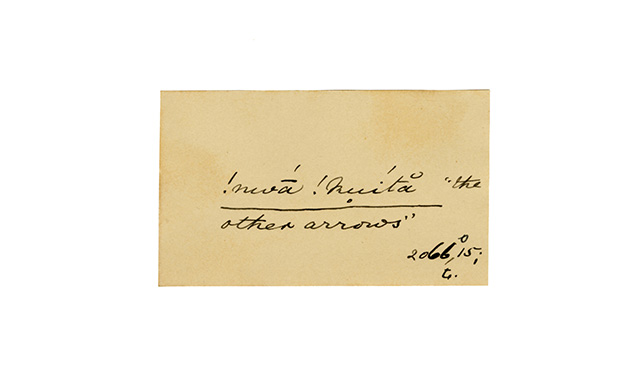 !nwā́ !kuítḁ̊ "the
other arrows"
2066, 15;